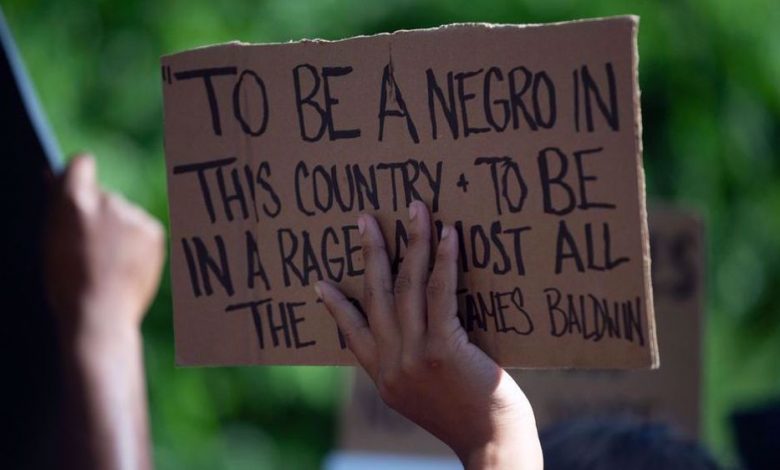 "TO BE A NEGRO IN
THIS COUNTRY + TO BE
IN A RAGE ALMOST ALL
THE JAMES BALDWIN